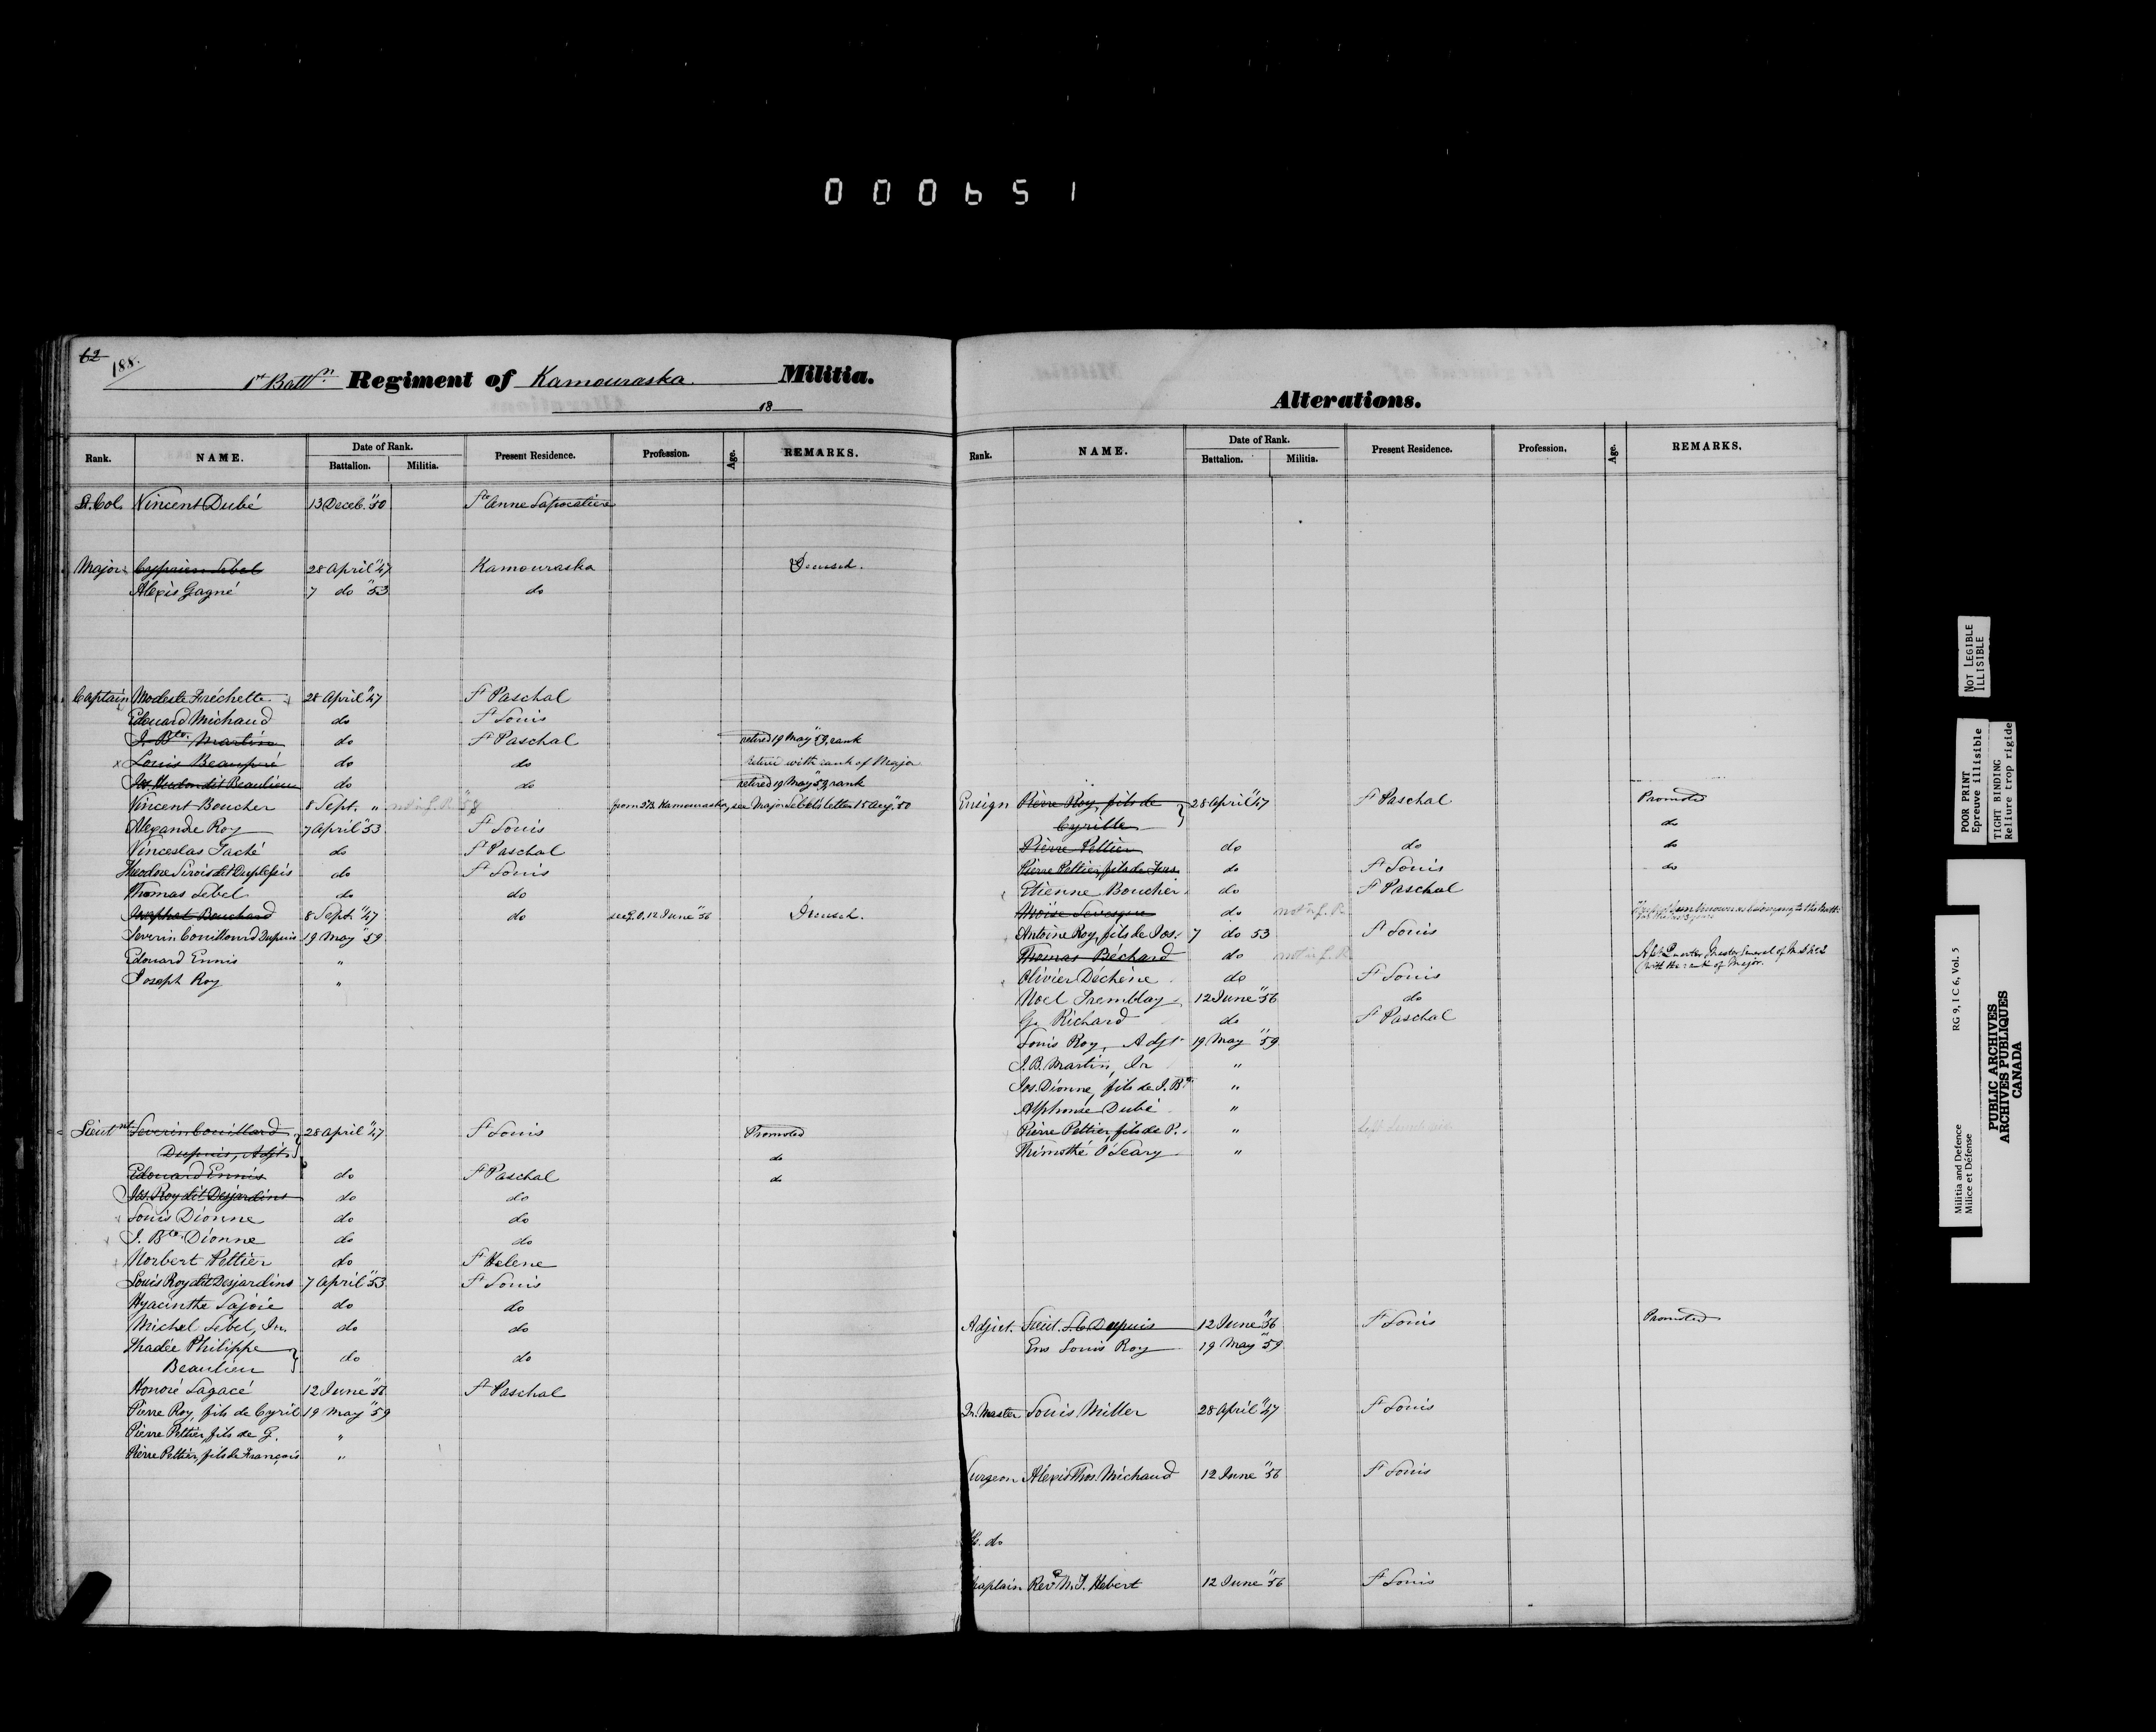 000651
62
188.
1st Battn. Regiment of Kamouraska Militia.
18
Rank. NAME. Date of Rank. Battalion. Militia. Present Residence. Profession. Age. REMARKS.
Lt. Col. Vincent Dubé 13 Deceb. "50 Ste Anne Lapocatiere
Majors Cyprien Lebel 28 April "47 Kamouraska Deceasd.
Alexis Gagné 7 do "53 do
Captain Modeste Fréchette 28 April "47 St Paschal
Edouard Michaud do St Louis
J. Bte. Martin do St Paschal retired 19 May "59, rank
x Louis Beaupré do do retired with rank of Major
Jos. Hudon dit Beaulieu do do retired 19 May "59, rank
Vincent Boucher 8 Sept. " not in L. R. "58 from 5th Kamouraska, see Major Lebel's letter 15 Aug. "50
Alexandre Roy 7 April "53 St Louis
Vinceslas Taché do St Paschal
Theodore Sirois dit Duplessis do St Louis
Thomas Lebel do do
Bouchard 8 Sept. "47 do see G.O. 12 June "56 Deceasd.
Severin Couillard Dupuis 19 May "59
Edouard Ennis "
Joseph Roy "
Lieutnt Severin Couillard 28 April "47 St Louis Promoted
Dupuis, Adjt. do
Edouard Ennis do St Paschal do
Jos. Roy dit Desjardins do do
Louis Dionne do do
J. Bte. Dionne do do
Norbert Peltier do St Helene
Louis Roy dit Desjardins 7 April "53 St Louis
Hyacinthe Lajoie do do
Michel Lebel, Jr. do do
Thadée Philippe
Beaulieu do do
Honoré Lagacé 12 June "56 St Paschal
Pierre Roy, fils de Cyril 19 May "59
Pierre Peltier, fils de G. "
Pierre Peltier, fils de François "
Alterations.
Rank. NAME. Date of Rank. Battalion. Militia. Present Residence. Profession. Age. REMARKS.
Ensign Pierre Roy, fils de 28 April "47 St Paschal Promoted
Cyrille do
Pierre Peltier do do do
Pierre Peltier, fils de Frns. do St Louis do
Etienne Boucher do St Paschal
Moïse Levesque do not in L. R. unknown as belonging to the Battn.
Antoine Roy, fils de Jos. 7 do 53 St Louis
Thomas Béchard do not in L. R. Asst. Quarter Master General of M. D. No. 2
(With the rank of Major.
Olivier Dechêne do St Louis
Noel Tremblay 12 June "56 do
G. Richard do St Paschal
Louis Roy, Adjt. 19 May "59
J. B. Martin, Jr "
Jos. Dionne, fils de J. Bte "
Alphonse Dubé "
Pierre Peltier, fils de P. " Left
Thimothé O'Leary "
Adjut. Lieut. S. C. Dupuis 12 June "56 St Louis Promoted
Ens Louis Roy 19 May "59
Qr. Master Louis Miller 28 April "47 St Louis
Surgeon Alexis Thos. Michaud 12 June "56 St Louis
do
Chaplain Revd. N. T. Hebert 12 June "56 St Louis
NOT LEGIBLE
ILLISIBLE
POOR PRINT
Epreuve illisible
TIGHT BINDING
Reliure trop rigide
Militia and Defence
Milice et Défense
RG 9, I C 6, Vol. 5
PUBLIC ARCHIVES
ARCHIVES PUBLIQUES
CANADA